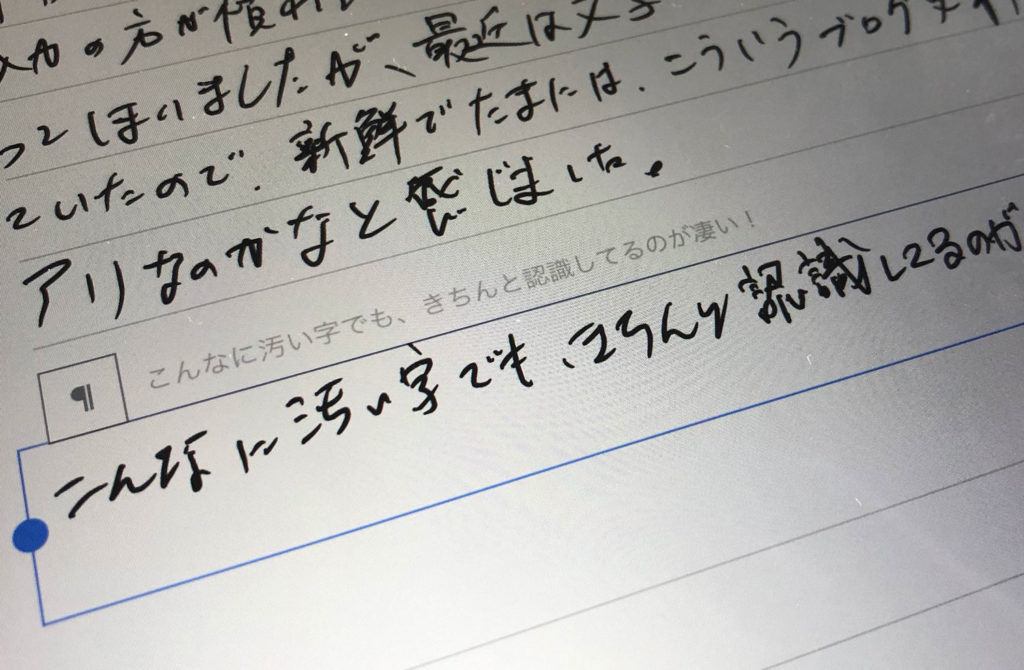 の方が慣れ
ってしまいましたが、最近はメモ
ていたので、新鮮でたまには、こういうブログ
アリなのかなと感じました。
こんなに汚い字でも、きちんと認識してるのが凄い！
¶
こんなに汚い字でも、きちんと認識してるのが